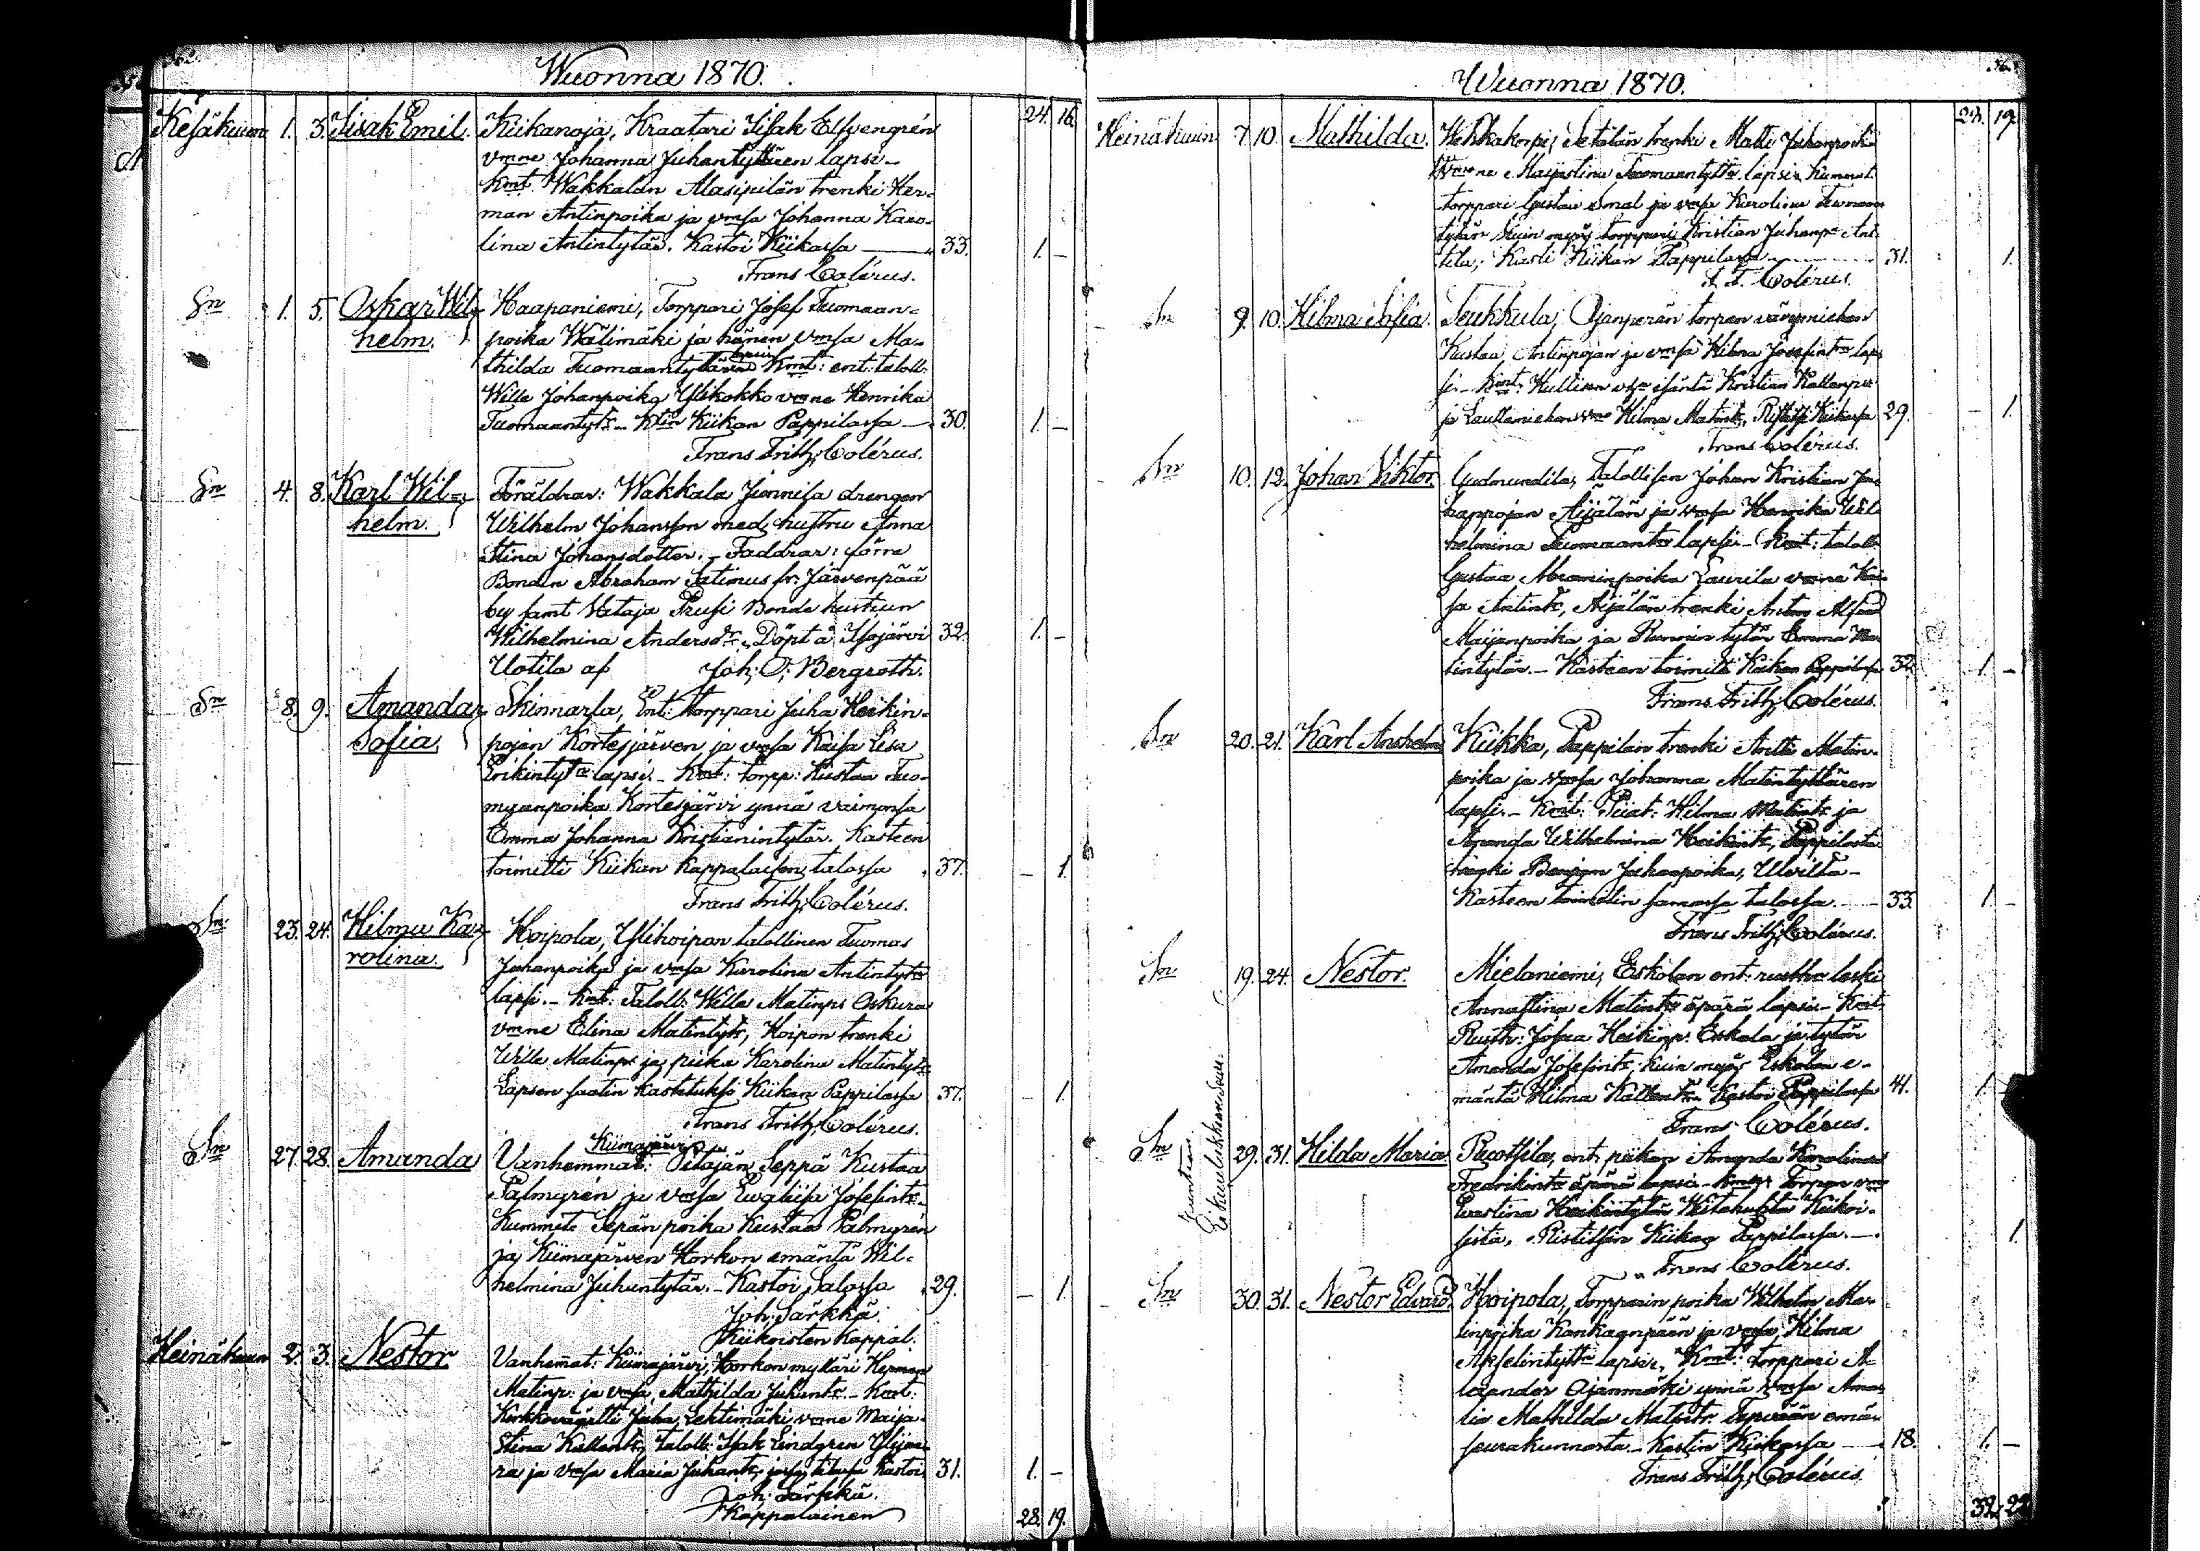 Wuonna 1870.
24. 16.
Kesäkuun 1. 3. Iisak Emil. Kiikanoja, Kraatari Iisak Elfvengrén
vmne Johanna Juhantyttären lapsi -
Kmt Wakkalan Alasipilän trenki Her-
man Antinpoika ja vmsa Johanna Karo-
lina Antintytär. Kastoi Kiikassa 33. 1. -
Frans Colérus.
Sn 1. 5. Oskar Wil- Haapaniemi, Torppari Josef Tuomaan-
helm. poika Wälimäki ja hänen vmsa Ma-
thilda Tuomaantytären lapsi Kmt: ent: taloll:
Wille Johanpoika Ylikokko vmne Henrika
Tuomaantytr - Kiikan Pappilassa 30. 1. -
Frans Frith. Colérus.
Sn 4. 8. Karl Wil- Föräldrar: Wakkala Junnila drengen
helm. Wilhelm Johansson med hustru Anna
Stina Johansdotter. - Faddrar: förre
Bonden Abraham fr: Järvenpää
by samt Bonde hustrun
Wilhelmina Andersdr. Döpt å Isojärvi 32. 1. -
Uotila af Joh. O. Bergroth.
Sn 8. 9. Amanda Skinnarla, Ent: torppari Juha Heikin-
Sofia. pojan Kortejärven ja vmsa Kaisa Lisa
Erikintytr lapsi. - Kmt: torpp: Kustaa Tuo-
maanpoika Kortesjärvi ynnä vaimonsa
Emma Johanna Kristianintytär. Kasteen
toimitti Kiikan Kappalaisen talossa 37. - 1.
Frans Frith. Colérus.
Sn 23. 24. Hilma Ka- Hoipola, Ylihoipon talollinen Tuomas
rolina. Juhanpoika ja vmsa Karolina Antintytr
lapsi. - Kmt: Taloll: Wille Matinp:
vmne Elina Matintytr, Hoipon trenki
Wille Matinp: ja piika Karolina Matintytr
Lapsen saatin kastetuksi Kiikan Pappilassa 37. - 1.
Frans Frith. Colérus.
Kiimajärvi
Sn 27. 28. Amanda Vanhemmat: Petäjän Seppä Kustaa
Palmgrén ja vmsa Ewaliisa Josefintr.
Kummit: Sepän poika Kustaa Palmgrén
ja Kiimajärven Horkon emäntä Wil-
helmina Juhantytär. - Kastoi Salossa 29. - 1.
Joh. Särkkä.
Kiikoisten Kappal.
Heinäkuun 2. 3. Nestor Vanhemat: Kiimajärvi, Horkon mylläri Herman
Matinp: ja vmsa Mathilda Juhantr. - Kmt:
Juha Lehtimäki vmne Maija
Stina Kallentr, Taloll: Isak Lindgren
ja vmsa Maria Juhantr, Kastoi 31. 1. -
Joh. Särkkä.
Kappalainen
28. 19.
Wuonna 1870.
28. 19.
Heinäkuun 7. 10. Mathilda. trenki Matti Juhanpoika
vmne Majastina Tuomaantytr lapsi. Kummit:
torppari Gustav ja vmsa Karolina Tuomaan
tytär kuin myös torppari Kristian Juhanp: Ant-
tila; Kasti Kiikan Pappilassa 31. 1.
F. F. Colérus.
Sn 9. 10. Hilma Sofia. Teukkula; Ojanperän torpan
Kustaa Antinpojan ja vmsa Hilma Josefintr lap-
si. - Kmt: isäntä Kristian
ja Lauttamiehen vmo Hilma Matintr. Kiikassa 29. - 1.
Frans Colérus.
Sn 10. 12. Johan Viktor Gudmundila, Talollisen Johan Kristian Ja-
kappojan Äijälän ja vmsa Henrika Wil-
helmina Tuomaantr lapsi - Kmt: taloll:
Gustaa Abraminpoika Laurila vmne Kai-
sa Antintr, Äijälän trenki Anton Alfred
Maijanpoika ja tytär Emma Ma-
tintytär. - Kasteen toimitti Kiikan Pappilassa 32. 1. -
Frans Frith. Colérus.
Sn 20. 21. Karl Anshelm Kiikka, Pappilan trenki Antti Matin-
poika ja vmsa Johanna Matintyttären
lapsi. - Kmt: Piiat: Hilma Matintr ja
Amanda Wilhelmina Heikintr, Pappilasta
trenki Benjam Juhanpoika, Ulvilta -
Kasteen toimitin samassa talossa. 33. 1. -
Frans Frith. Colérus.
Sn 19. 24. Nestor. Mielaniemi, Eskolan ent: rusth: leski
Annastina Matintr äpärä lapsi. - Kmt:
Rusth: Josua Heikinp: Eskola ja tytär
Amanda Josefintr, kuin myös Eskolan e-
mäntä Hilma Kallentr. Kastoi Pappilassa 41. 1.
Frans Colérus.
Sn 29. 31. Hilda Maria Ruottila, ent: piikan Amanda Karolina
Fredrikintr äpärä lapsi. - Torpan vmo
Evastina Heikintytär Kiikoi-
sista, Ristittiin Kiikan Pappilassa. 1.
Frans Colérus.
Sn 30. 31. Nestor Edvard. Hoipola, Torpparin poika Wilhelm Ma-
tinpoika Kankaanpään ja vmsa Hilma
Akselintytr lapsi, Kmt: torppari A-
lexander Ojanmäki ynnä vmsa Ama-
lia Mathilda Matintr.
seurakunnasta. - Kastin Kiikassa 18. 1. -
Frans Frith. Colérus.
32. 22.